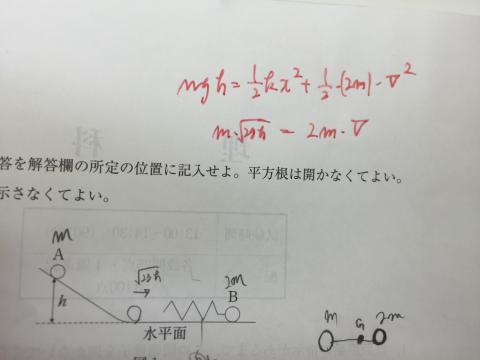 mgh = 1/2 kx² + 1/2 · (2m) · V²
m · √2gh = 2m · V
答を解答欄の所定の位置に記入せよ。平方根は開かなくてよい。
示さなくてよい。
m
A
h
√2gh
2m
B
水平面
m G 2m